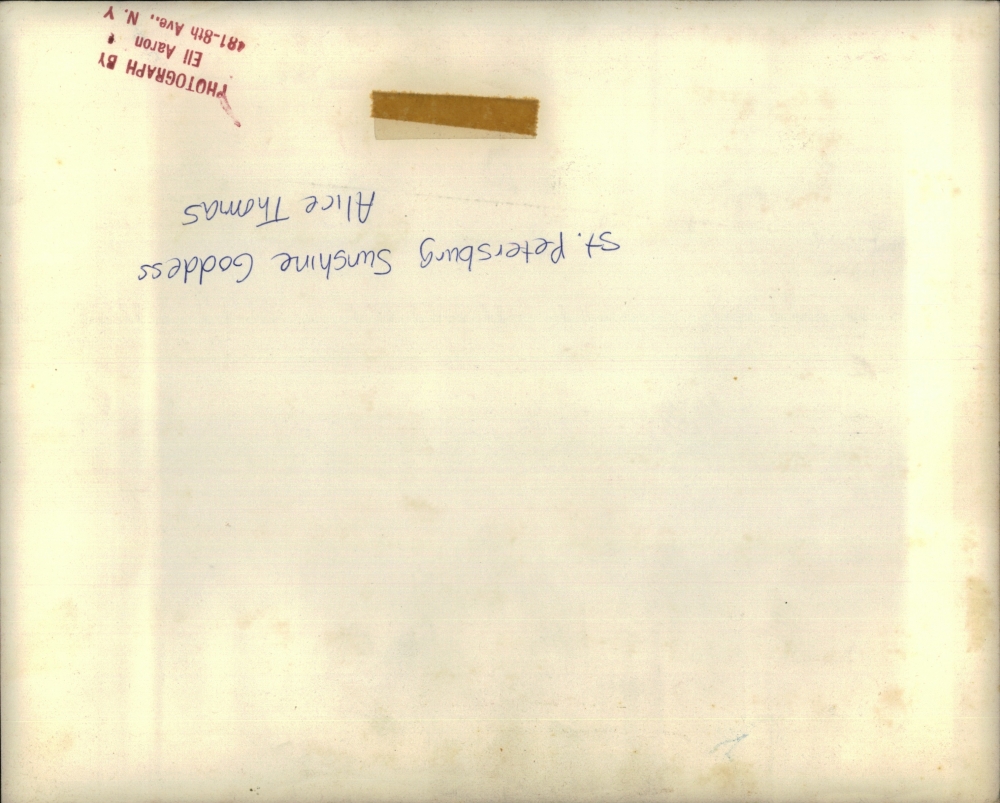 St. Petersburg Sunshine Goddess
Alice Thomas
PHOTOGRAPH BY
Eli Aaron
481-8th Ave., N. Y